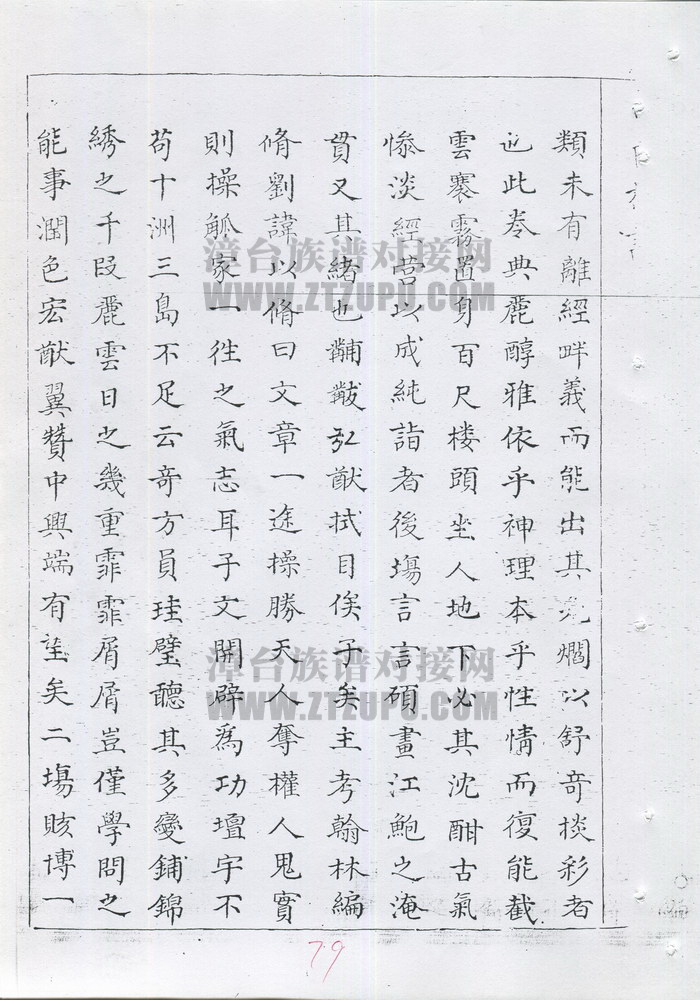 類未有離經畔義而能出其光爓以舒奇掞彩者
近此卷典麗醇雅依乎神理本乎性情而復能截
雲褰霧置身百尺楼頭坐人地下必其沈酣古氣
慘淡經营以成純詣者後塲言言碩畫江鮑之淹
貫又其緒也黼黻弘猷拭目俟子矣主考翰林編
脩劉諱以脩曰文章一途操勝天人奪權人鬼實
則操觚家一徃之氣志耳子文開辟為功壇宇不
苟十洲三島不足云奇方員珪璧聽其多變鋪錦
綉之千段麗雲日之幾重霏霏屑屑豈僅學問之
能事潤色宏猷翼贊中興端有望矣二塲賅博一
漳台族谱对接网
WWW.ZTZUPU.COM
漳台族谱对接网
WWW.ZTZUPU.COM
79